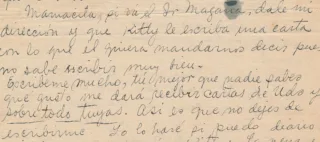 Mamacita, si va el Dr Magaña, dale mi
direccion y que Kitty le escriba una carta
con lo que el quiera mandarnos decir pues
no sabe escribir muy bien.
Escribeme mucho, tu mejor que nadie sabes
que gusto me dará recibir cartas de Uds y
sobre todo tuyas. Asi es que no dejes de
escribirme Yo lo haré si puedo diario